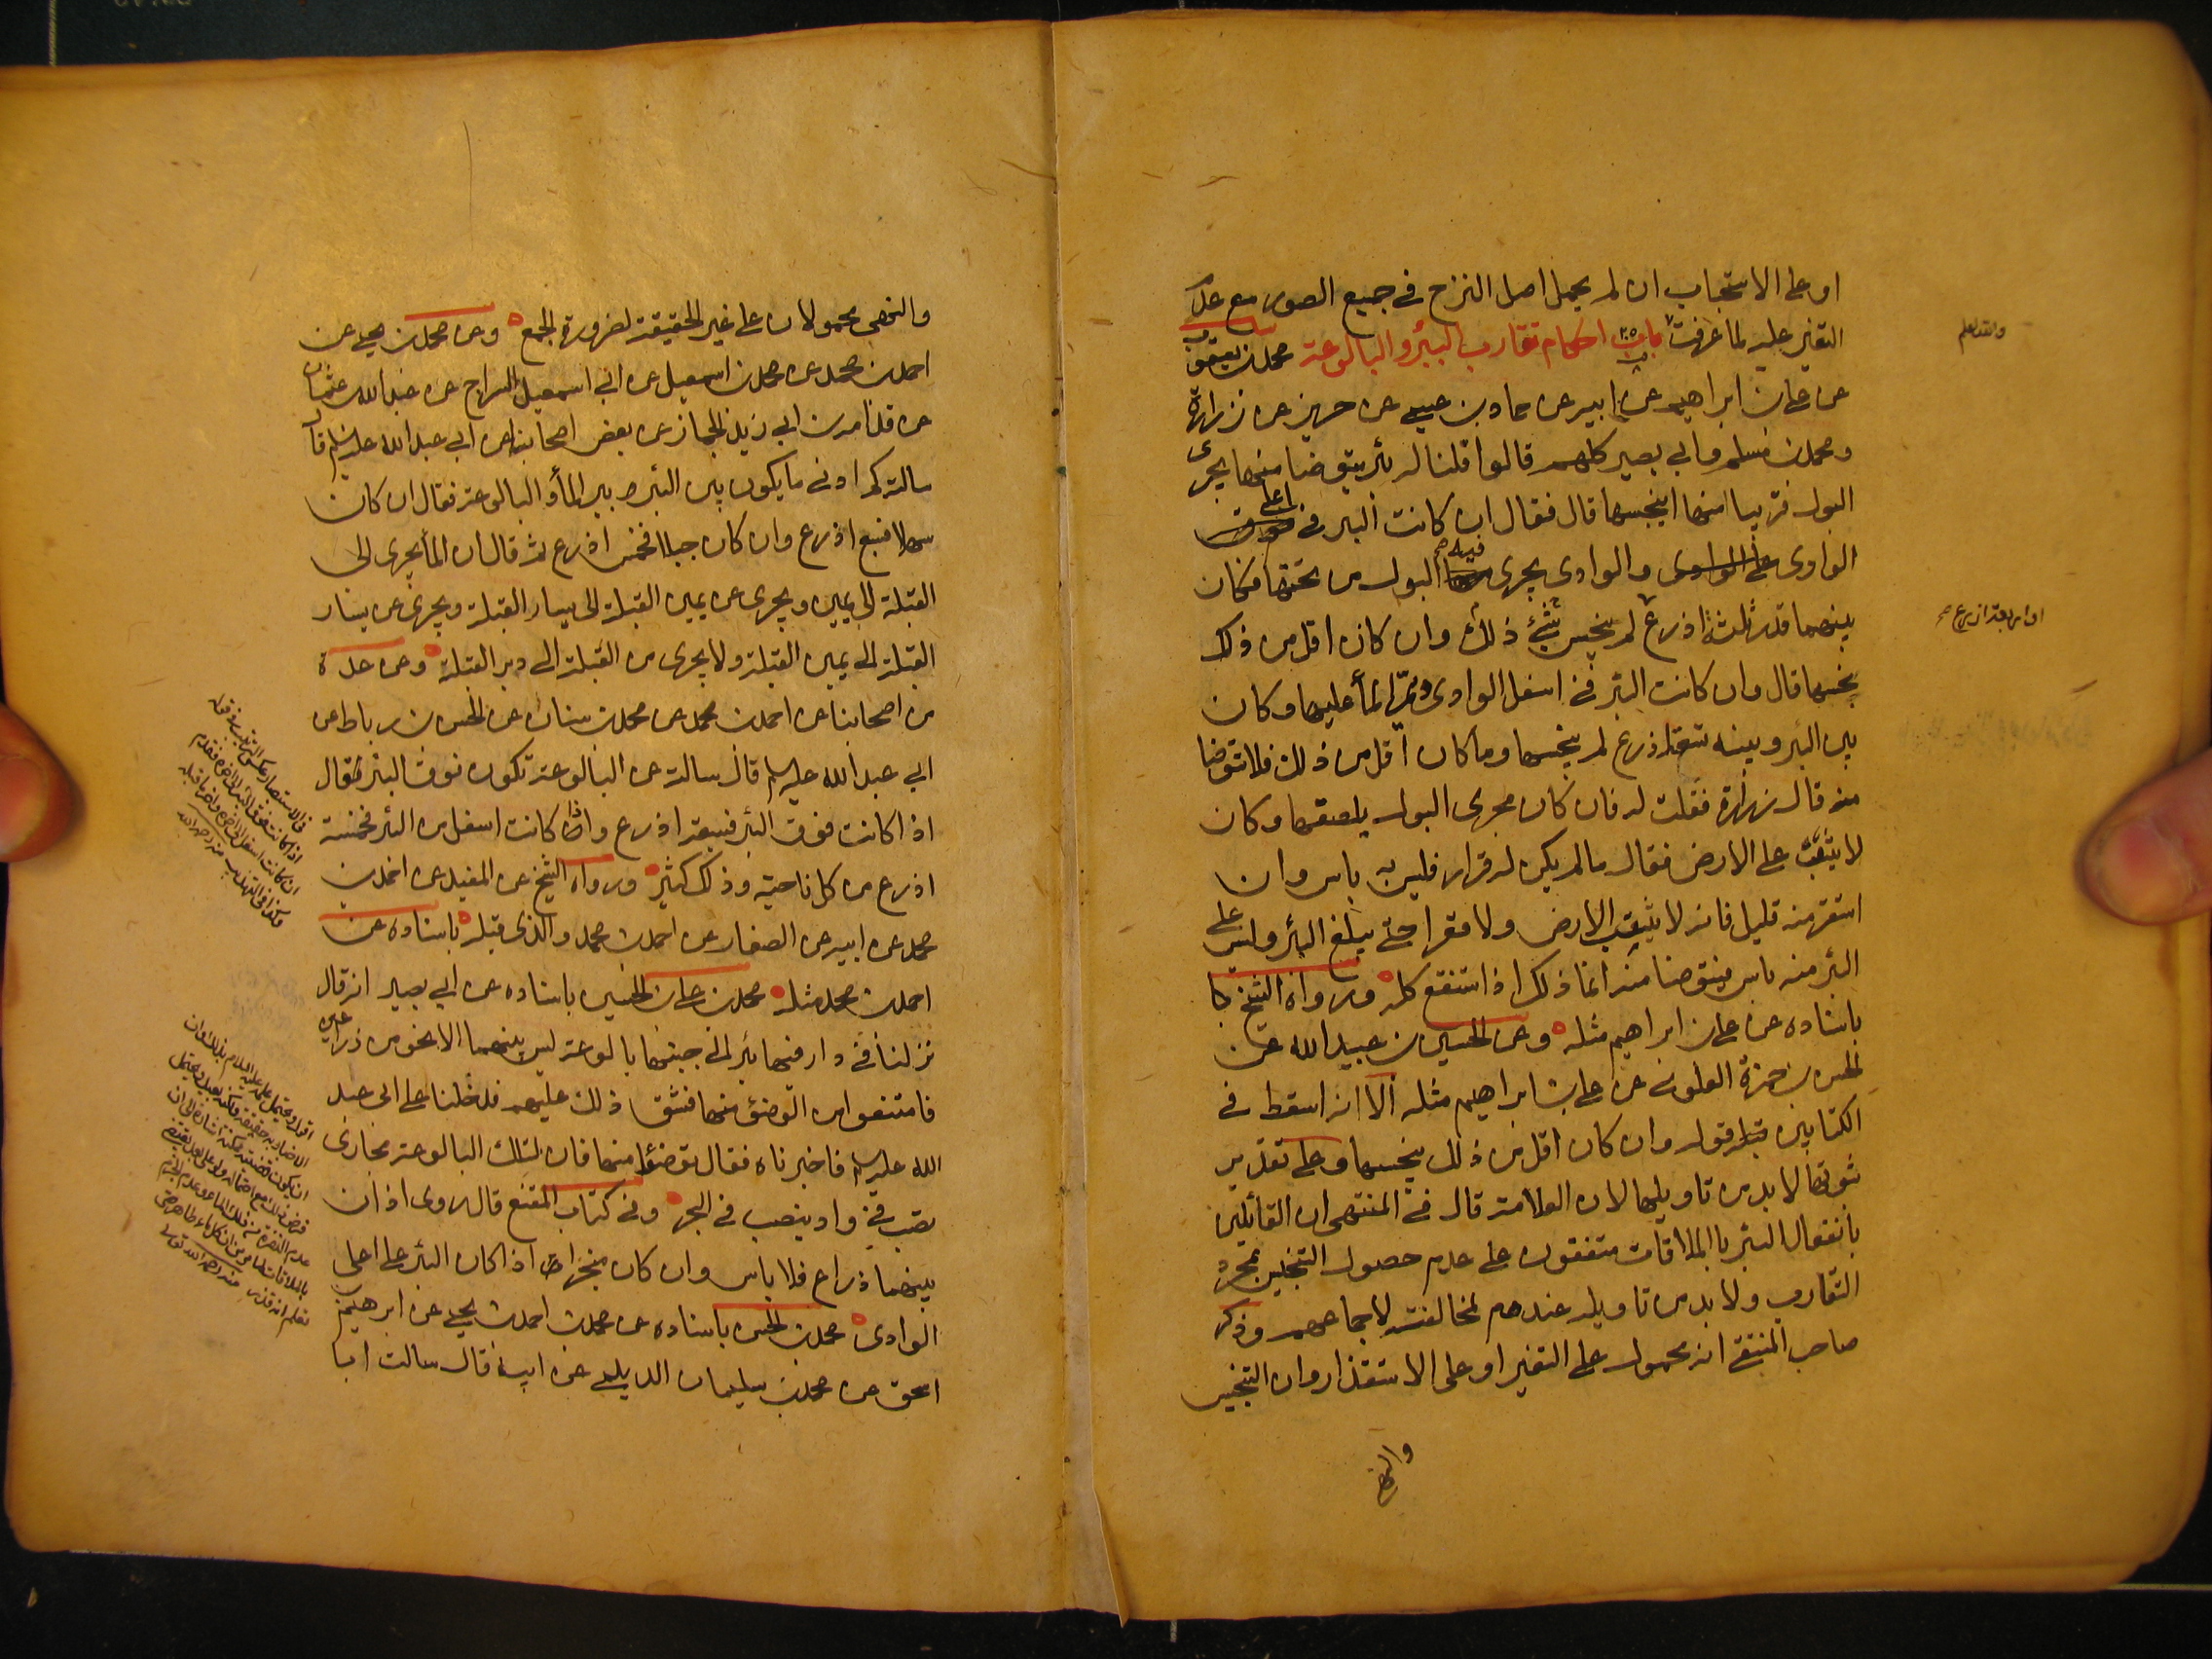 او على الاستحباب ان لم يحمل اصل النزح في جميع الصور مع عدم
التغير عليه لما عرفت باب احكام تقارب البئر والبالوعة محمد بن يعقوب
عن علي بن ابراهيم عن ابيه عن حماد بن عيسى عن حريز عن زرارة
ومحمد بن مسلم وابي بصير كلهم قالوا قلنا له بئر يتوضا منها يجرى
البول قريبا منها اينجسها قال فقال ان كانت البئر في اعلى
الوادى والوادى يجرى فيه البول من تحتها فكان
بينهما قدر ثلثة اذرع لم ينجس ذلك شئ وان كان اقل من ذلك
ينجسها قال وان كانت البئر في اسفل الوادى ويمر الماء عليها وكان
بين البئر وبينه تسعة اذرع لم ينجسها وما كان اقل من ذلك فلا تتوضا
منه قال زرارة فقلت له فان كان مجرى البول يلصقها وكان
لا يثبت على الارض فقال ما لم يكن له قرار فليس به باس وان
استقر منه قليل فانه لا يثقب الارض ولا قعر له حتى يبلغ البئر وليس على
البئر منه باس فيتوضا منه انما ذلك اذا استنقع كله ورواه الشيخ
باسناده عن علي بن ابراهيم مثله وعن الحسين بن عبيد الله عن
الحسن بن حمزة العلوي عن علي بن ابراهيم مثله الا انه اسقط في
الكتابين قوله وان كان اقل من ذلك ينجسها وعلى تقدير
ثبوتها لابد من تاويلها لان العلامة قال في المنتهى ان القائلين
بانفعال البئر بالملاقات متفقون على عدم حصول التنجيس بمجرد
التقارب ولابد من تاويله عندهم لمخالفته لاجماعهم وذكر
صاحب المنتقى انه محمول على التغير او على الاستقذار وان التنجيس
والنهي
والله اعلم
او اربعة اذرع صح
والنهى محمولان على غير الحقيقة لضرورة الجمع وعن محمد بن يحيى عن
احمد بن محمد عن محمد بن اسمعيل عن ابي اسمعيل السراج عن عبد الله بن عثمان
عن قدامة بن ابي زيد الجماز عن بعض اصحابنا عن ابي عبد الله عليه السلام قال
سالته كم ادنى ما يكون بين البئر بئر الماء والبالوعة فقال ان كان
سهلا فسبع اذرع وان كان جبلا فخمس اذرع ثم قال ان الماء يجرى الى
القبلة الى يمين ويجرى عن يمين القبلة الى يسار القبلة ويجرى عن يسار
القبلة الى يمين القبلة ولا يجرى من القبلة الى دبر القبلة وعن عدة
من اصحابنا عن احمد بن محمد عن محمد بن سنان عن الحسن بن رباط عن
ابي عبد الله عليه السلام قال سالته عن البالوعة تكون فوق البئر فقال
اذا كانت فوق البئر فسبعة اذرع واذا كانت اسفل من البئر فخمسة
اذرع من كل ناحية وذلك كثير ورواه الشيخ عن المفيد عن احمد بن
محمد عن ابيه عن الصفار عن احمد بن محمد والذى قبله باسناده عن
احمد بن محمد مثله محمد بن علي بن الحسين باسناده عن ابي بصير انه قال
نزلنا في دار فيها بئر الى جنبها بالوعة ليس بينهما الا نحو من ذراعين
فامتنعوا من الوضوء منها فشق ذلك عليهم فدخلنا على ابي عبد
الله عليه السلام فاخبرناه فقال توضؤا منها فان لتلك البالوعة مجارى
تصب في واد ينصب في البحر وفي كتاب المقنع قال روى اذا كان
بينهما ذراع فلا باس وان كان مبخرا اذا كان البئر على اعلى
الوادى محمد بن الحسن باسناده عن محمد بن احمد بن يحيى عن ابرهيم بن
اسحق عن محمد بن سليمان الديلمى عن ابيه قال سالت ابا